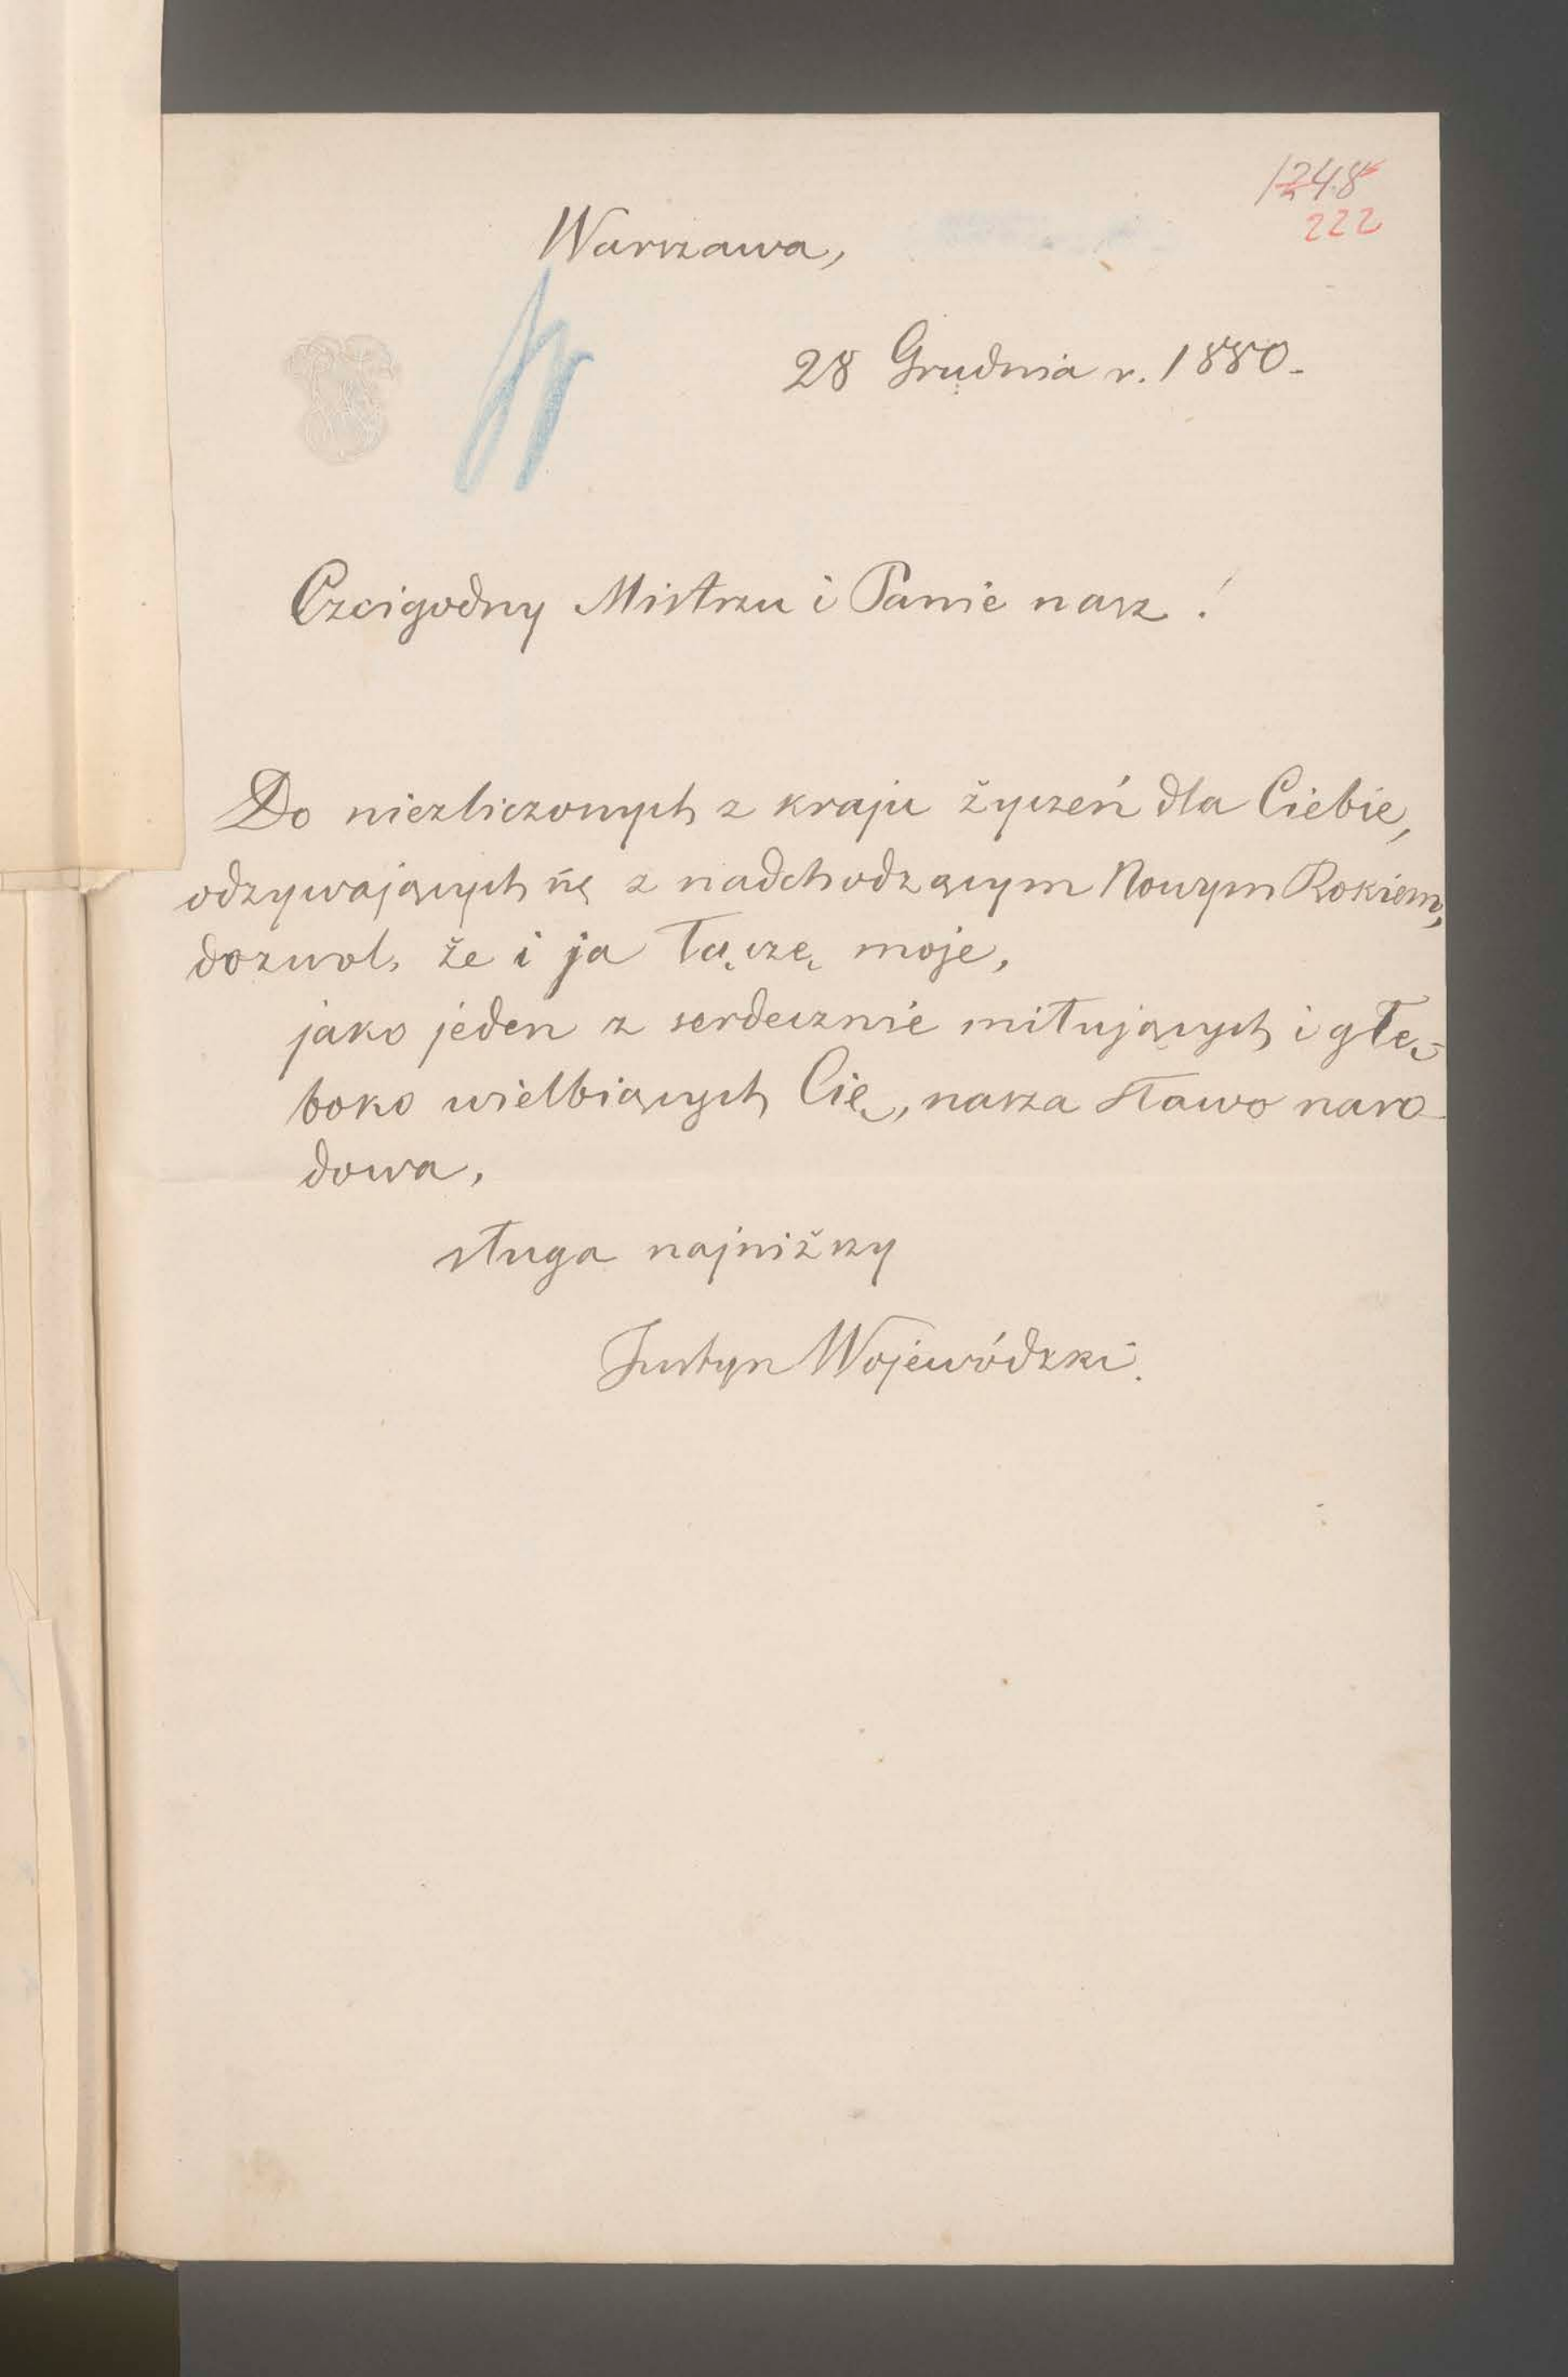 1248
222
Warszawa,
28 Grudnia r. 1880.
Czcigodny Mistrzu i Panie nasz!
Do niezliczonych z kraju życzeń dla Ciebie,
odzywających się z nadchodzącym Nowym Rokiem,
dozwol, że i ja łączę moje,
jako jeden z serdecznie miłujących i głę-
boko wielbiących Cię, nasza sławo naro-
dowa,
sługa najniższy
Justyn Wojewódzki.